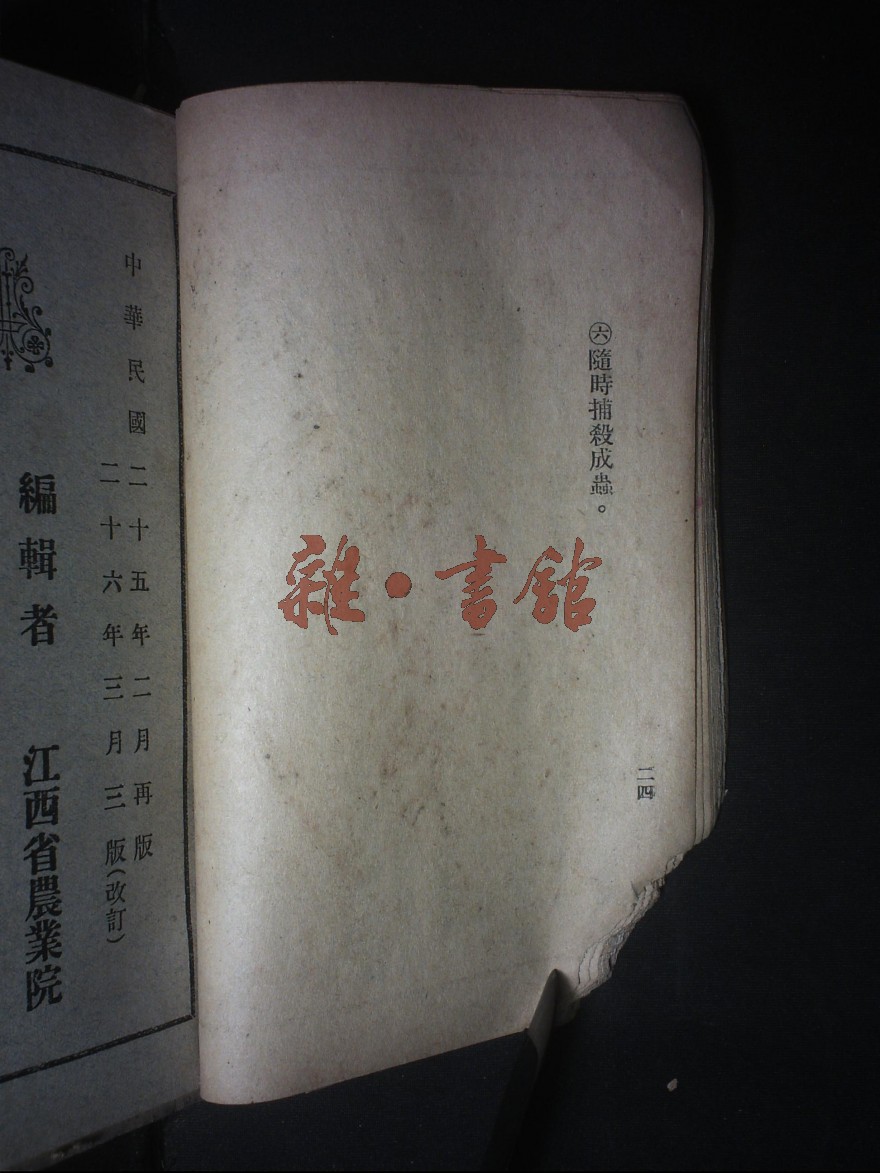 ㊅隨時捕殺成蟲。
二四
雜·書館
中華民國二十五年二月再版
二十六年三月三版(改訂)
編輯者 江西省農業院